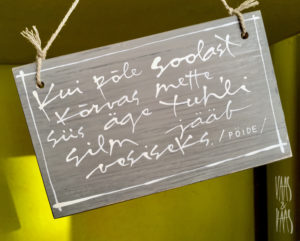 Kui põle soolast
kõrvas mette
siis äge tuhli
silm jääb
vesiseks. /PÖIDE/
VAAS
&
PAAS